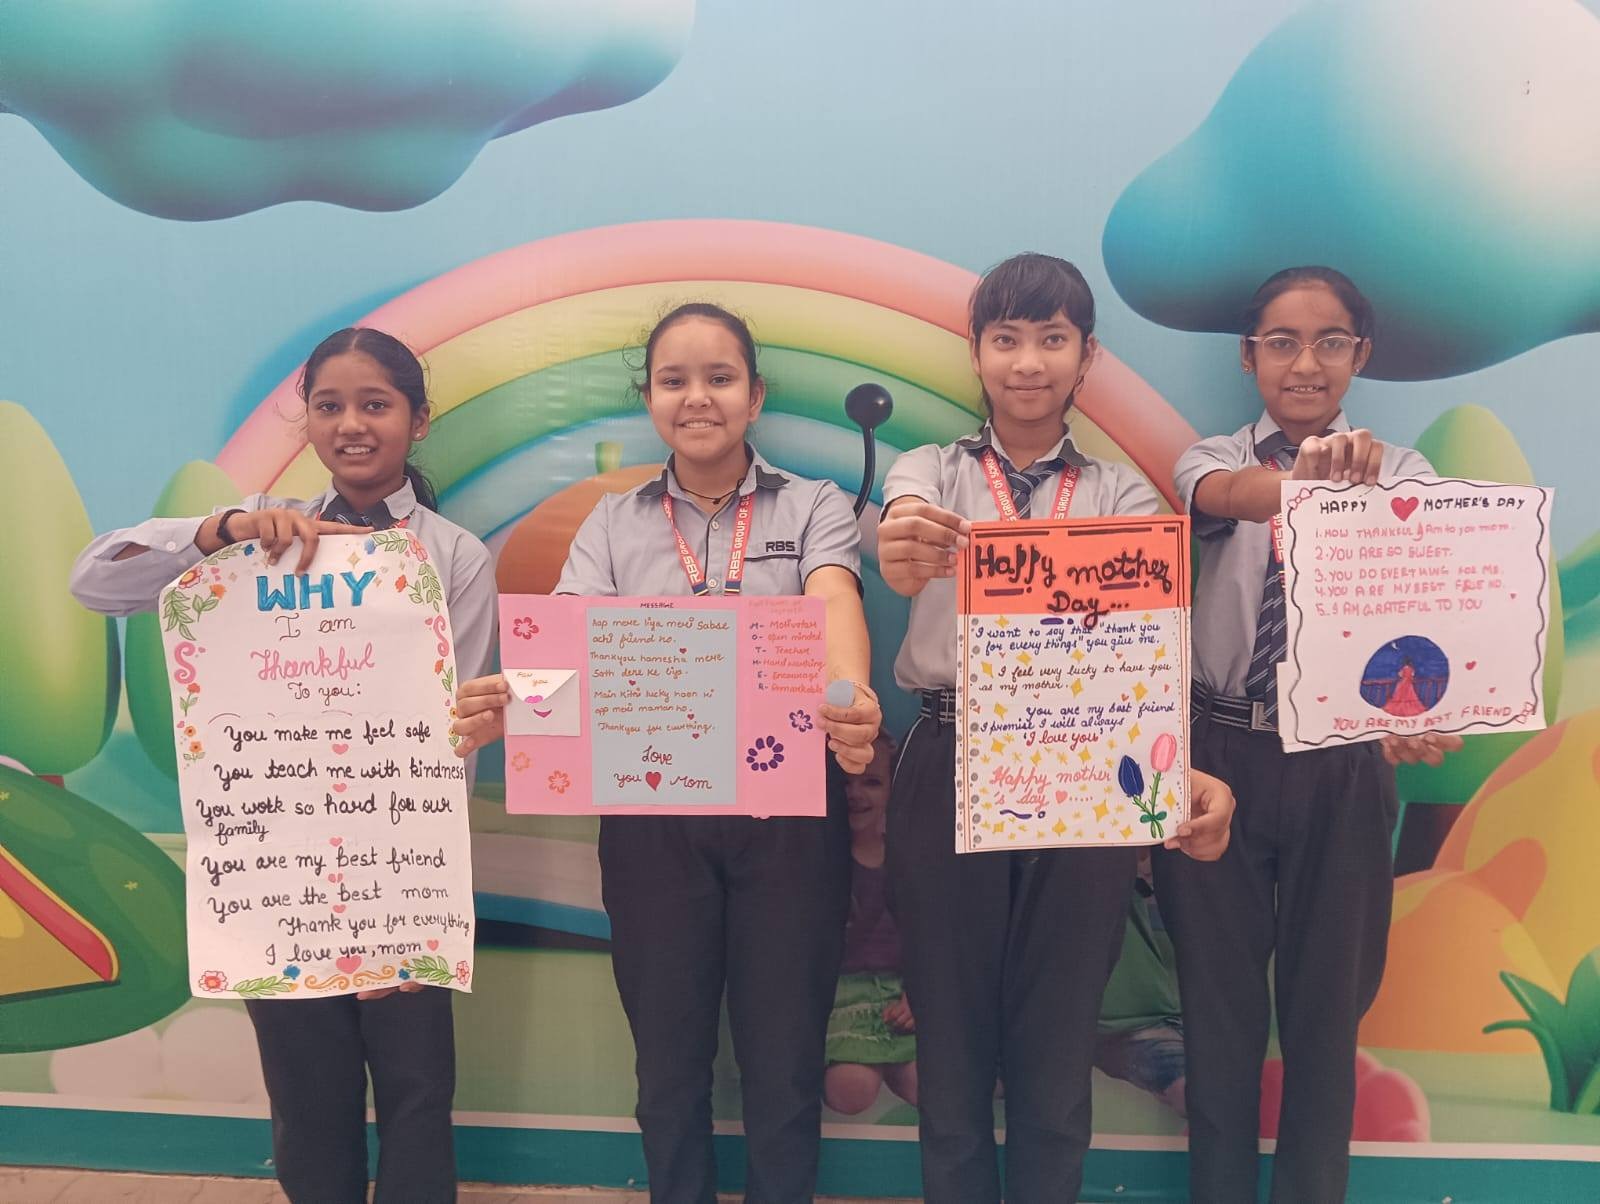 WHY
I am
Thankful
To you:
You make me feel safe
You teach me with kindness
You work so hard for our
family
You are my best friend
You are the best mom
Thank you for everything
I love you, mom
RBS
RBS GROUP OF
MESSAGE
For
you
Aap mere liya meri Sabse
achi friend ho.
Thankyou hamesha mere
Sath dene ke liya.
Main kitni lucky hoon ki
app meri maman ho.
Thankyou for everthing.
Love
you Mom
M- Motivator
O- open minded
T- Teacher
H- Hard working
E- Encourage
R- Remarkable
GROUP OF SCHOOL
Happy mother
Day...
"I want to say that "thank you
for every things" you give me.
I feel very lucky to have you
as my mother.
you are my best friend
I promise I will always
'I love you'
Happy mother
's day
HAPPY MOTHER'S DAY
1. HOW THANKFUL I Am to you mom.
2. YOU ARE SO SWEET.
3. YOU DO EVERYTHING FOR ME.
4. YOU ARE MY BEST FRIEND.
5. I AM GRATEFUL TO YOU
YOU ARE MY BEST FRIEND